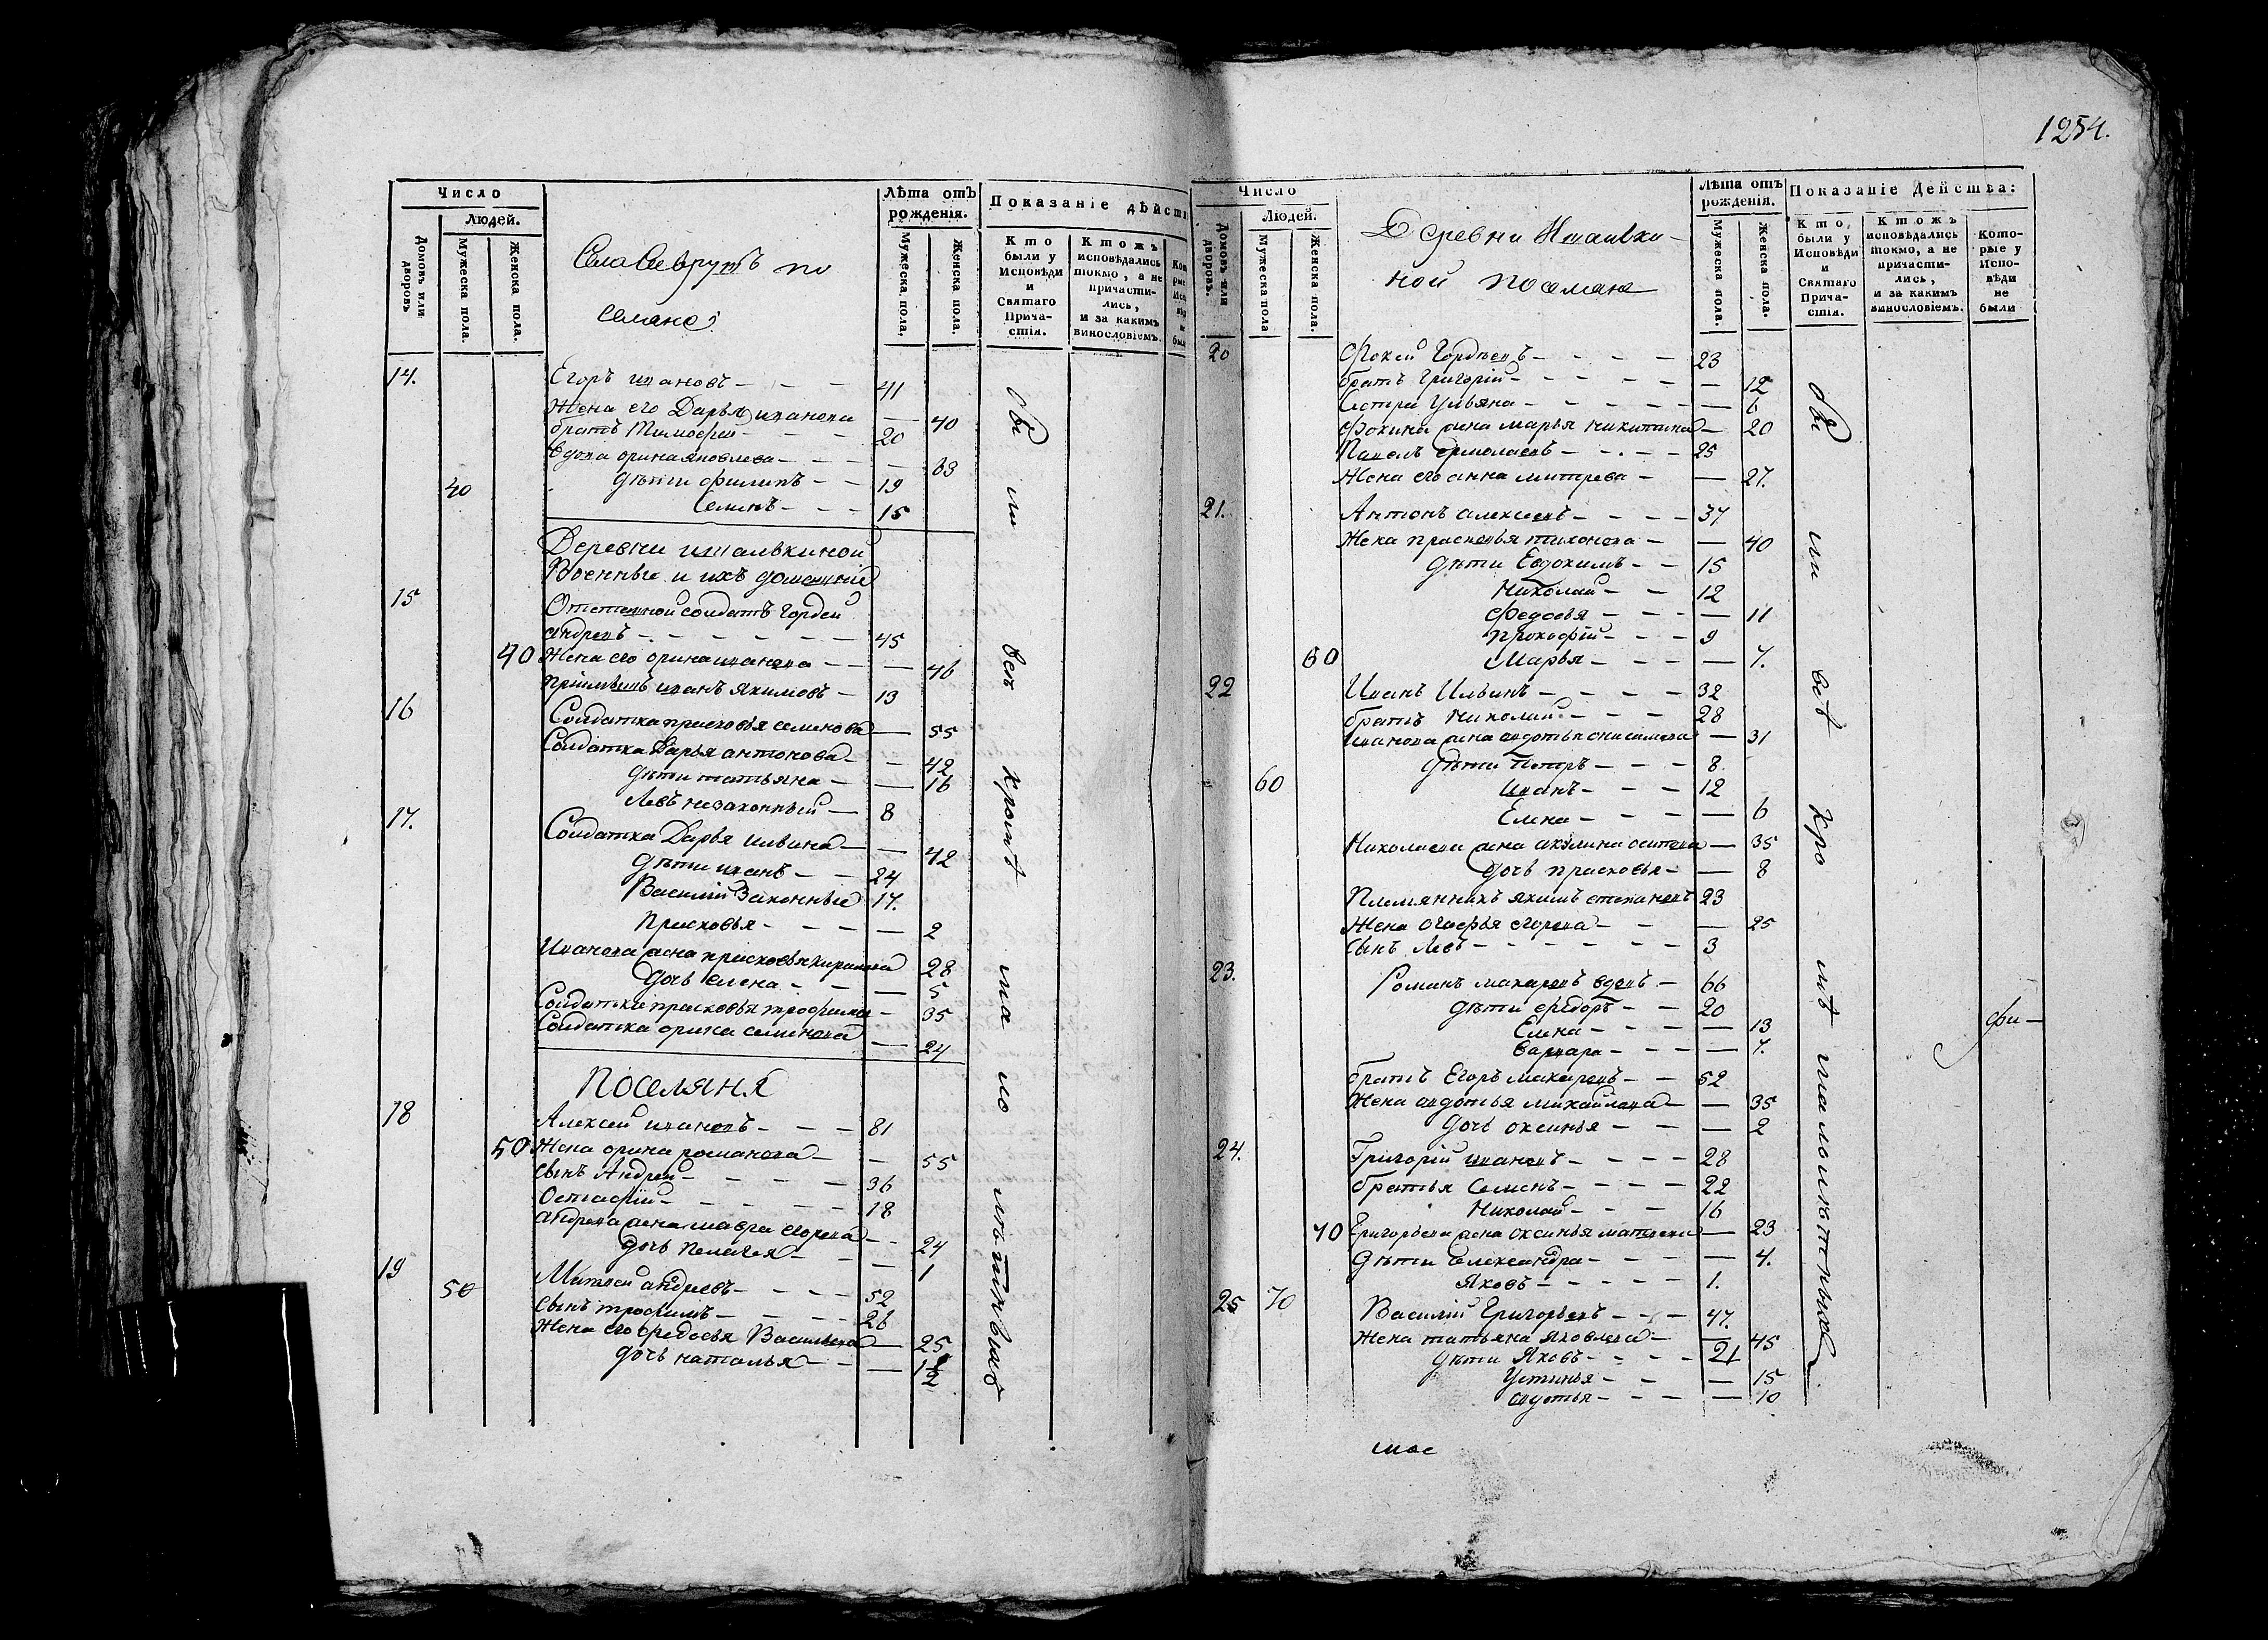 1254.
Число
Людей.
Домовъ или дворовъ
Мужеска пола.
Женска пола.
Села Севрутъ по
селяне:
Лѣта отъ рожденія.
Мужеска пола,
Женска пола.
Показаніе дѣйств
Кто были у Исповѣди и Святаго Причастія.
Ктожъ исповѣдались токмо, а не причастились, и за какимъ винословіемъ.
14. Егоръ ивановъ - - - 41
Жена его Дарья иванова — 40
братъ Тимофей - - - 20
Вдова орина яковлева - - - — 63
дѣти филипъ - - 19
40 Семенъ - - - 15
Деревни
Военные и ихъ домашніе
15 Отставной солдатъ гордей
андреевъ - - - - - - 45
40 Жена его орина иванова - - — 46
пріимышъ иванъ якимовъ - 13
16 Солдатка прасковья семенова — 55
Солдатка Дарья антонова - — 42
дѣти татьяна - — 16
Левъ незаконный — 8
17. Солдатка Дарья ильина — — 42
дѣти иванъ - - 24
Василій Законные 17.
Прасковья - - - - — 2
Иванова жена прасковья 28
дочь елена - - - — 5
Солдатка прасковья трофимова - 35
Солдатка орина семенова — 24
Поселяня
18 Алексей ивановъ - - - 81
50 Жена орина романова - — 55
сынъ Андрей - - - - - 36
Остафій - - - - - 18
андреева жена мавра егорова - - 24
дочь пелагея - - - — 1
19 Матвей андреевъ - - - - 52
50 сынъ трофимъ - - - - 26
Жена его федосья Васильева — 25
дочь наталья - - - — 1 1/2
бы ли всѣ кромѣ ма ло лѣтныхъ
Число
Людей.
Домовъ или дворовъ.
Мужеска пола
Женска пола.
Деревни
ной поселяне
Лѣта отъ рожденія.
Мужеска пола.
Женска пола.
Показаніе Действа:
Кто были у Исповѣди и Святаго Причастія.
Ктожъ исповѣдались токмо, а не причастились, и за какимъ винословіемъ.
Которые у Исповѣди не были
20 Фокей Гордѣевъ - - - - 23
братъ Григорій - - - - - - — 12
Сестра Ульяна - - - - - - — 6
Фокина жена марья никитина — 20
Павелъ ермолаевъ - - - - 25
Жена его анна митрева - — 27.
21. Антонъ алексеевъ - - - - 37
Жена прасковья тихонова - — 40
дѣти Евдокимъ - - 15
Николай - - 12
Федосья - - - — 11
прокофій - - - 9
60 Марья - - - — 7.
22 Иванъ Ильинъ - - - - 32
братъ Николай - - - 28
Иванова жена авдотья онисимова — 31
дѣти Петръ - - - 8
60 иванъ - - - 12
Елена - - - — 6
Николаева жена акулина осипова — 35
дочь прасковья - — 8
Племянникъ якимъ степановъ 23
Жена огафья егорова - - — 25
сынъ Левъ - - - - - - 3
23. Романъ макаровъ вдовъ - 66
дѣти федоръ - - 20
Елена - - - - — 13
варвара - - - - — 7.
братъ Егоръ макаровъ - - 52
Жена авдотья михайлова - — 35
дочь оксинья - - - — 2
24. Григорій ивановъ - - - - 28
братья Семенъ - - - - 22
Николай - - - 16
70 Григорьева жена оксинья матвеева — 23
дѣти Александра - - - - — 4.
Яковъ - - - - - 1.
25 70 Василій Григорьевъ - - - 47.
Жена татьяна яковлева - — 45
дѣти Яковъ - - - - 21
Устинья - - - — 15
авдотья - - - — 10
бы ли всѣ Кро мѣ малолѣтныхъ
фи-